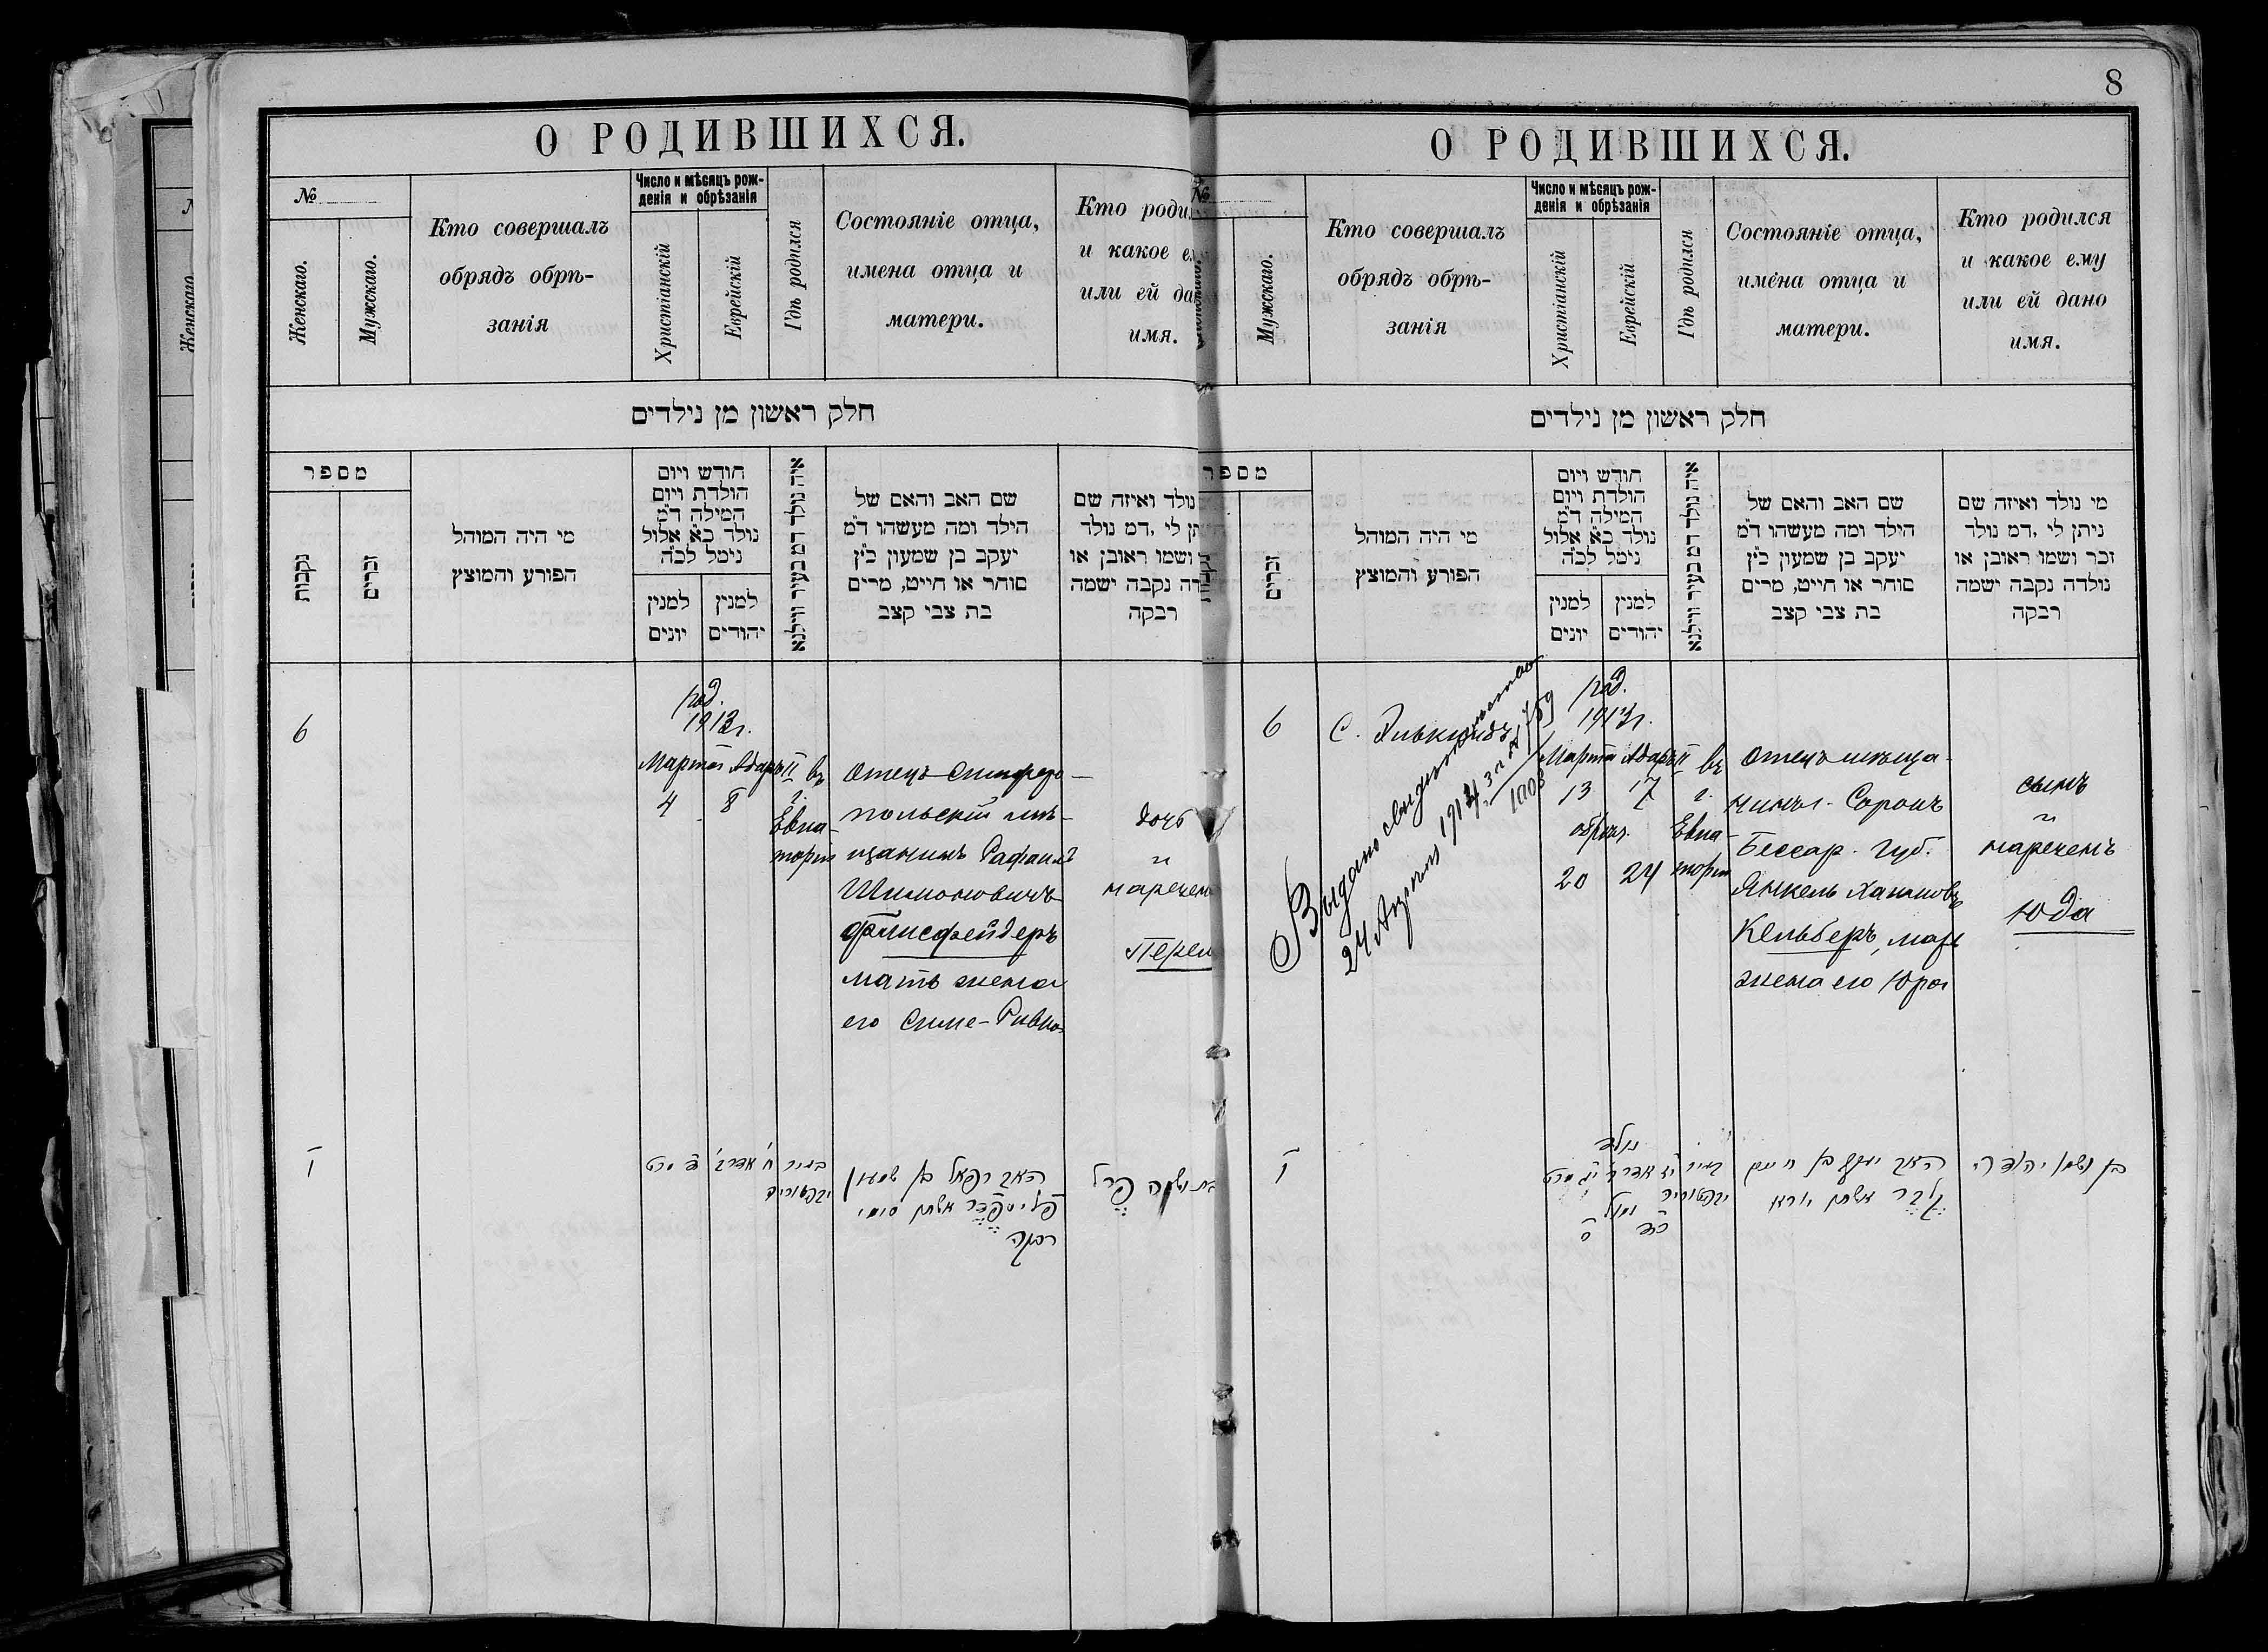 О РОДИВШИХСЯ.
№
Женскаго.
Мужскаго.
Кто совершалъ
обрядъ обрѣ-
занія
Число и мѣсяцъ рож-
денія и обрѣзанія
Христіанскій
Еврейскій
Гдѣ родился
Состояніе отца,
имена отца и
матери.
Кто роди
и какое е
или ей да
имя.
חלק ראשון מן נילדים
מספר
נקבות
זכרים
מי היה המוהל
הפורע והמוצץ
חודש ויום
הולדת ויום
המילה ד"מ
נולד כ"א אלול
נימל לכ"ה
למנין
יונים
למנין
יהודים
איה נולד דמ בעיר ווילנא
שם האב והאם של
הילד ומה מעשהו ד"מ
יעקב בן שמעון כ"ץ
סוחר או חייט, מרים
בת צבי קצב
נולד ואיזה שם
תן לי ,דמ נולד
ושמו ראובן או
דה נקבה ישמה
רבקה
6
род.
1913 г.
Марта Адаръ II въ
4 8 г.
Евпа-
торіи
отецъ Симферо-
польскій мѣ-
щанинъ Рафаилъ
Шимоновичъ
мать жена
его Симе-Ривка
дочь
и
наречен
Перел
ו
ד מרט
ח אדר ב
בעיר
האב רפאל בן שמעון
אשתו סימי
רבקה
בת ושמה פרל
8
О РОДИВШИХСЯ.
№
Мужскаго.
Кто совершалъ
обрядъ обрѣ-
занія
Число и мѣсяцъ рож-
денія и обрѣзанія
Христіанскій
Еврейскій
Гдѣ родился
Состояніе отца,
имена отца и
матери.
Кто родился
и какое ему
или ей дано
имя.
חלק ראשון מן נילדים
מספר
נקבות
זכרים
מי היה המוהל
הפורע והמוצץ
חודש ויום
הולדת ויום
המילה ד"מ
נולד כ"א אלול
נימל לכ"ה
למנין
יונים
למנין
יהודים
איה נולד דמ בעיר ווילנא
שם האב והאם של
הילד ומה מעשהו ד"מ
יעקב בן שמעון כ"ץ
סוחר או חייט, מרים
בת צבי קצב
מי נולד ואיזה שם
ניתן לי ,דמ נולד
זכר ושמו ראובן או
נולדה נקבה ישמה
רבקה
6
С.
Выдано свидѣтельство
24 Апрѣля 1914 г. за № 759
род.
1913 г.
Марта Адаръ II въ
13 17 г.
обрѣз. Евпа-
20 24 торіи
отецъ мѣща-
нинъ г. Сороки
Бессар. Губ.
Янкель Хаимовъ
Кельберъ, мать
жена его Юра
сынъ
и
нареченъ
Юда
ו
נולד
יג מרט
יז אדר ב
בעיר
נמול
כ
כד
האב יעקב בן חיים
קלבר אשתו יורא
בן ושמו יהודה